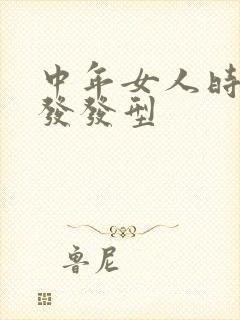 中年女人時
發發型
魯尼